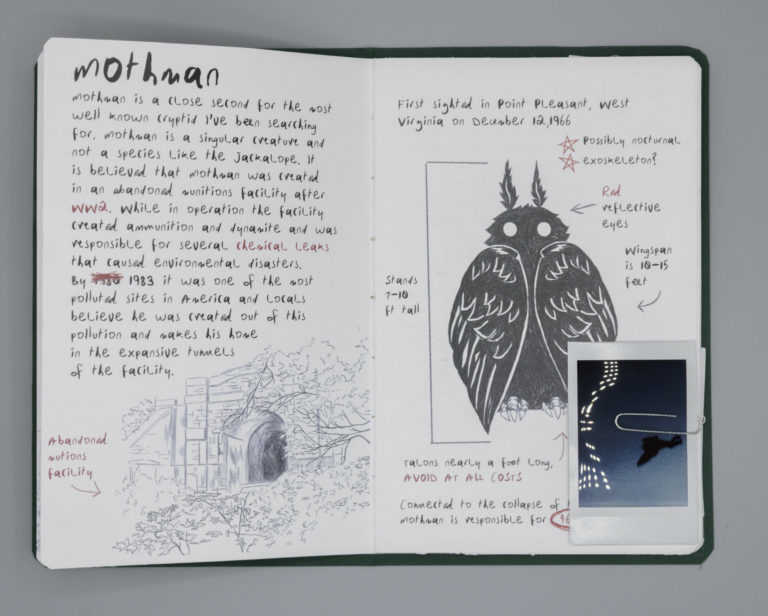 mothman
mothman is a close second for the most
well known cryptid I've been searching
for. mothman is a singular creature and
not a species like the Jackalope. It
is believed that mothman was created
in an abandoned munitions facility after
WW2. While in operation the facility
created ammunition and dynamite and was
responsible for several chemical leaks
that caused environmental disasters.
By 1983 it was one of the most
polluted sites in America and Locals
believe he was created out of this
pollution and makes his home
in the expansive tunnels
of the facility.
Abandoned
mutions
facility
First sighted in Point Pleasant, West
Virginia on December 12, 1966
Possibly nocturnal
exoskeleton?
Red
reflective
eyes
Wingspan
is 10-15
feet
Stands
7-10
ft tall
Talons nearly a foot long,
AVOID AT ALL COSTS
Connected to the collapse of
mothman is responsible for